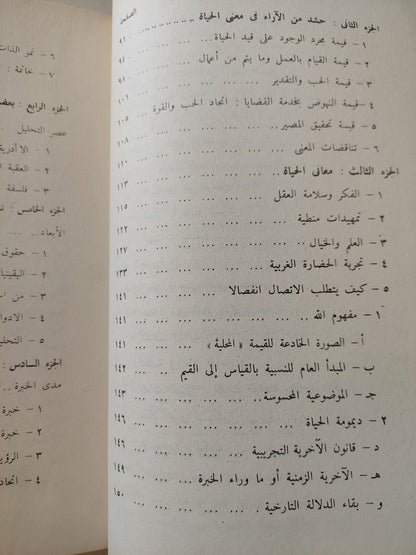 الصفحة
الجزء الثانى : حشد من الآراء فى معنى الحياة ... ... ... ٩١
١ - قيمة مجرد الوجود على قيد الحياة... ... ... ...
٢ - قيمة القيام بالعمل وما يتم من أعمال ... ... ... ٩٨
٣ - قيمة الحب والتقدير ... ... ... ... ١٠١
٤ - قيمة النهوض بخدمة القضايا : اتحاد الحب والقوة ... ١٠٥
٥ - قيمة تحقيق المصير... ... ... ... ... ١٠٨
٦ - تناقضات المعنى ... ... ... ... ... ١١٠
الجزء الثالث : معانى الحياة... ... ... ... ... ١١٣
١ - الفكر وسلامة العقل ... ... ... ... ... ١١٥
٢ - تمهيدات منطية ... ... ... ... ... ١٢٢
٣ - العلم والخيال ... ... ... ... ... ١٢٧
٤ - تجربة الحضارة الغربية ... ... ... ... ... ١٣٣
٥ - كيف يتطلب الاتصال انفصالا ... ... ... ... ١٤١
١ - مفهوم الله ... ... ... ... ... ... ١٤١
أ - الصورة الخادعة للقيمة «المحلية» ... ... ١٤١
ب - المبدأ العام للنسبية بالقياس إلى القيم ... ... ١٤٢
جـ - الموضوعية المحسوسة... ... ... ... ١٤٣
٢ - ديمومة الحياة ... ... ... ... ... ١٤٦
د - قانون الآخرية التجريبية ... ... ... ... ١٤٦
هـ - الآخرية الزمنية أو ما وراء الخبرة ... ... ١٤٩
و - بقاء الدلالة التارخية ... ... ... ... ١٥٠
٦ - نمو الذات
٧ - خاتمة :
الجزء الرابع :
عصر التحليل ...
١ -
٢ - العقبة
٣ - فلسفة
الجزء الخامس :
الأبعاد...
١ - حقوق
٢ -
٣ - من
٤ -
٥ -
الجزء السادس :
مدى الخبرة ..
١ - خبرة
٢ - خبرة
٣ -
٤ -